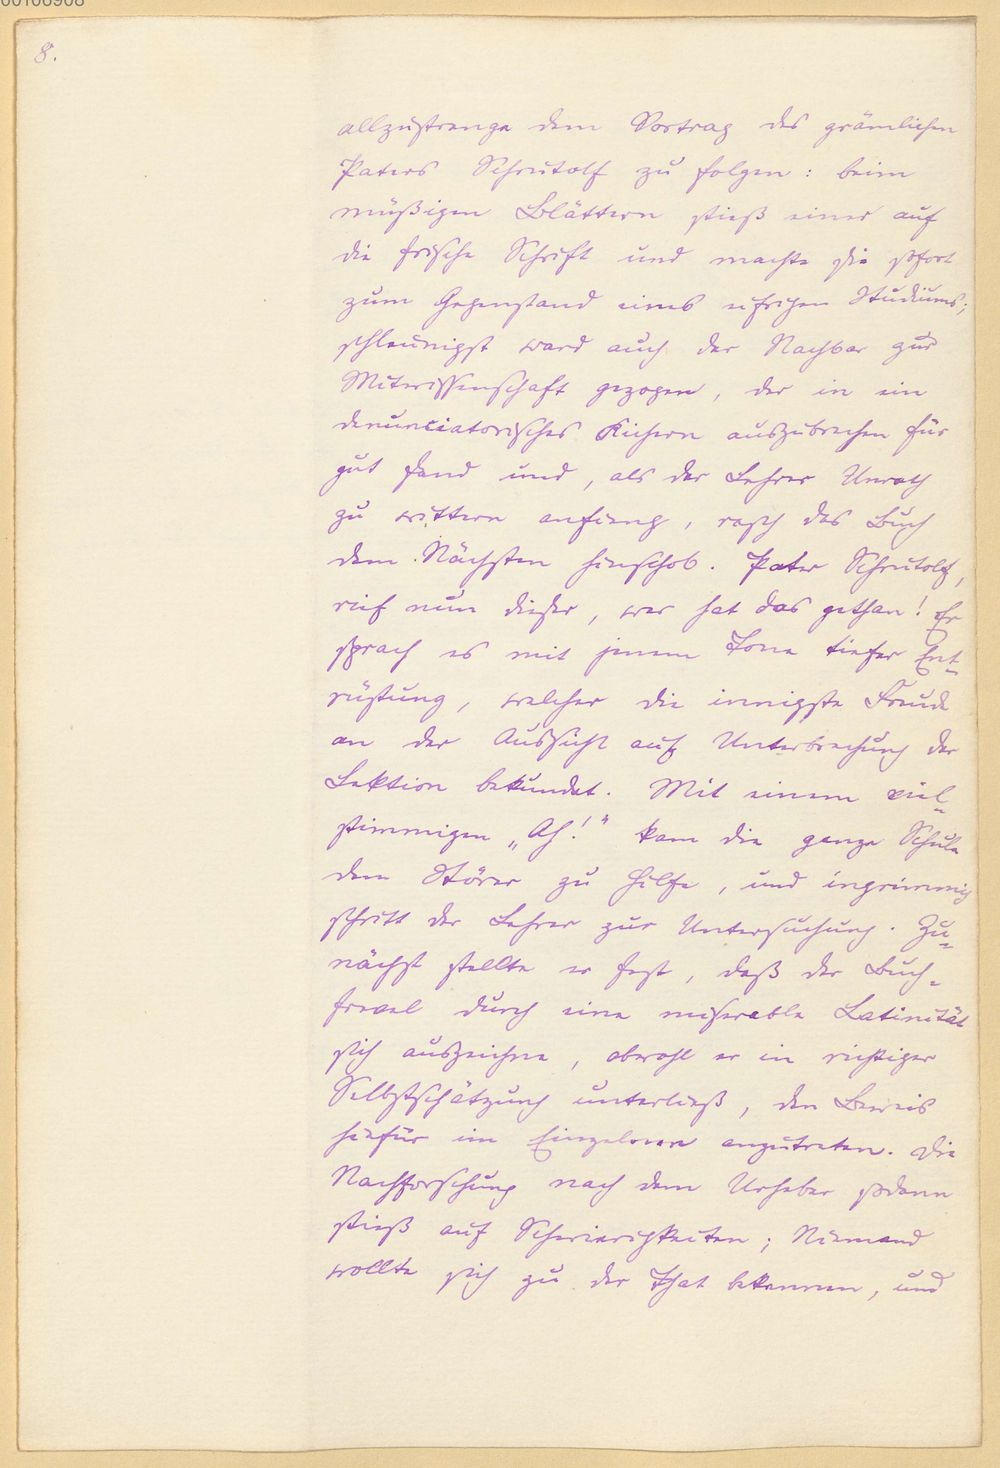 8.
allzustrenge dem Vortrag des grämlichen
Paters Schrutolf zu folgen: beim
müßigen Blättern stieß einer auf
die frische Schrift und machte sie sofort
zum Gegenstand eines eifrigen Studiums;
schleunigst ward auch der Nachbar zur
Mitwissenschaft gezogen, der in ein
denunciatorisches Kichern auszubrechen für
gut fand und, als der Lehrer Unrath
zu wittern anfieng, rasch das Buch
dem Nächsten hinschob. Pater Schrutolf,
rief nun dieser, wer hat das gethan! Er
sprach es mit jenem Tone tiefer Ent-
rüstung, welcher die innigste Freude
an der Aussicht auf Unterbrechung der
Lektion bekundet. Mit einem viel-
stimmigen „Ah!" kam die ganze Schule
dem Störer zu Hilfe, und ingrimmig
schritt der Lehrer zur Untersuchung. Zu-
nächst stellte er fest, daß der Buch-
frevel durch eine miserable Latinität
sich auszeichne, obwohl er in richtiger
Selbstschätzung unterließ, den Beweis
hiefür im Einzelnen anzutreten. Die
Nachforschung nach dem Urheber sodann
stieß auf Schwierigkeiten; Niemand
wollte sich zu der That bekennen, und